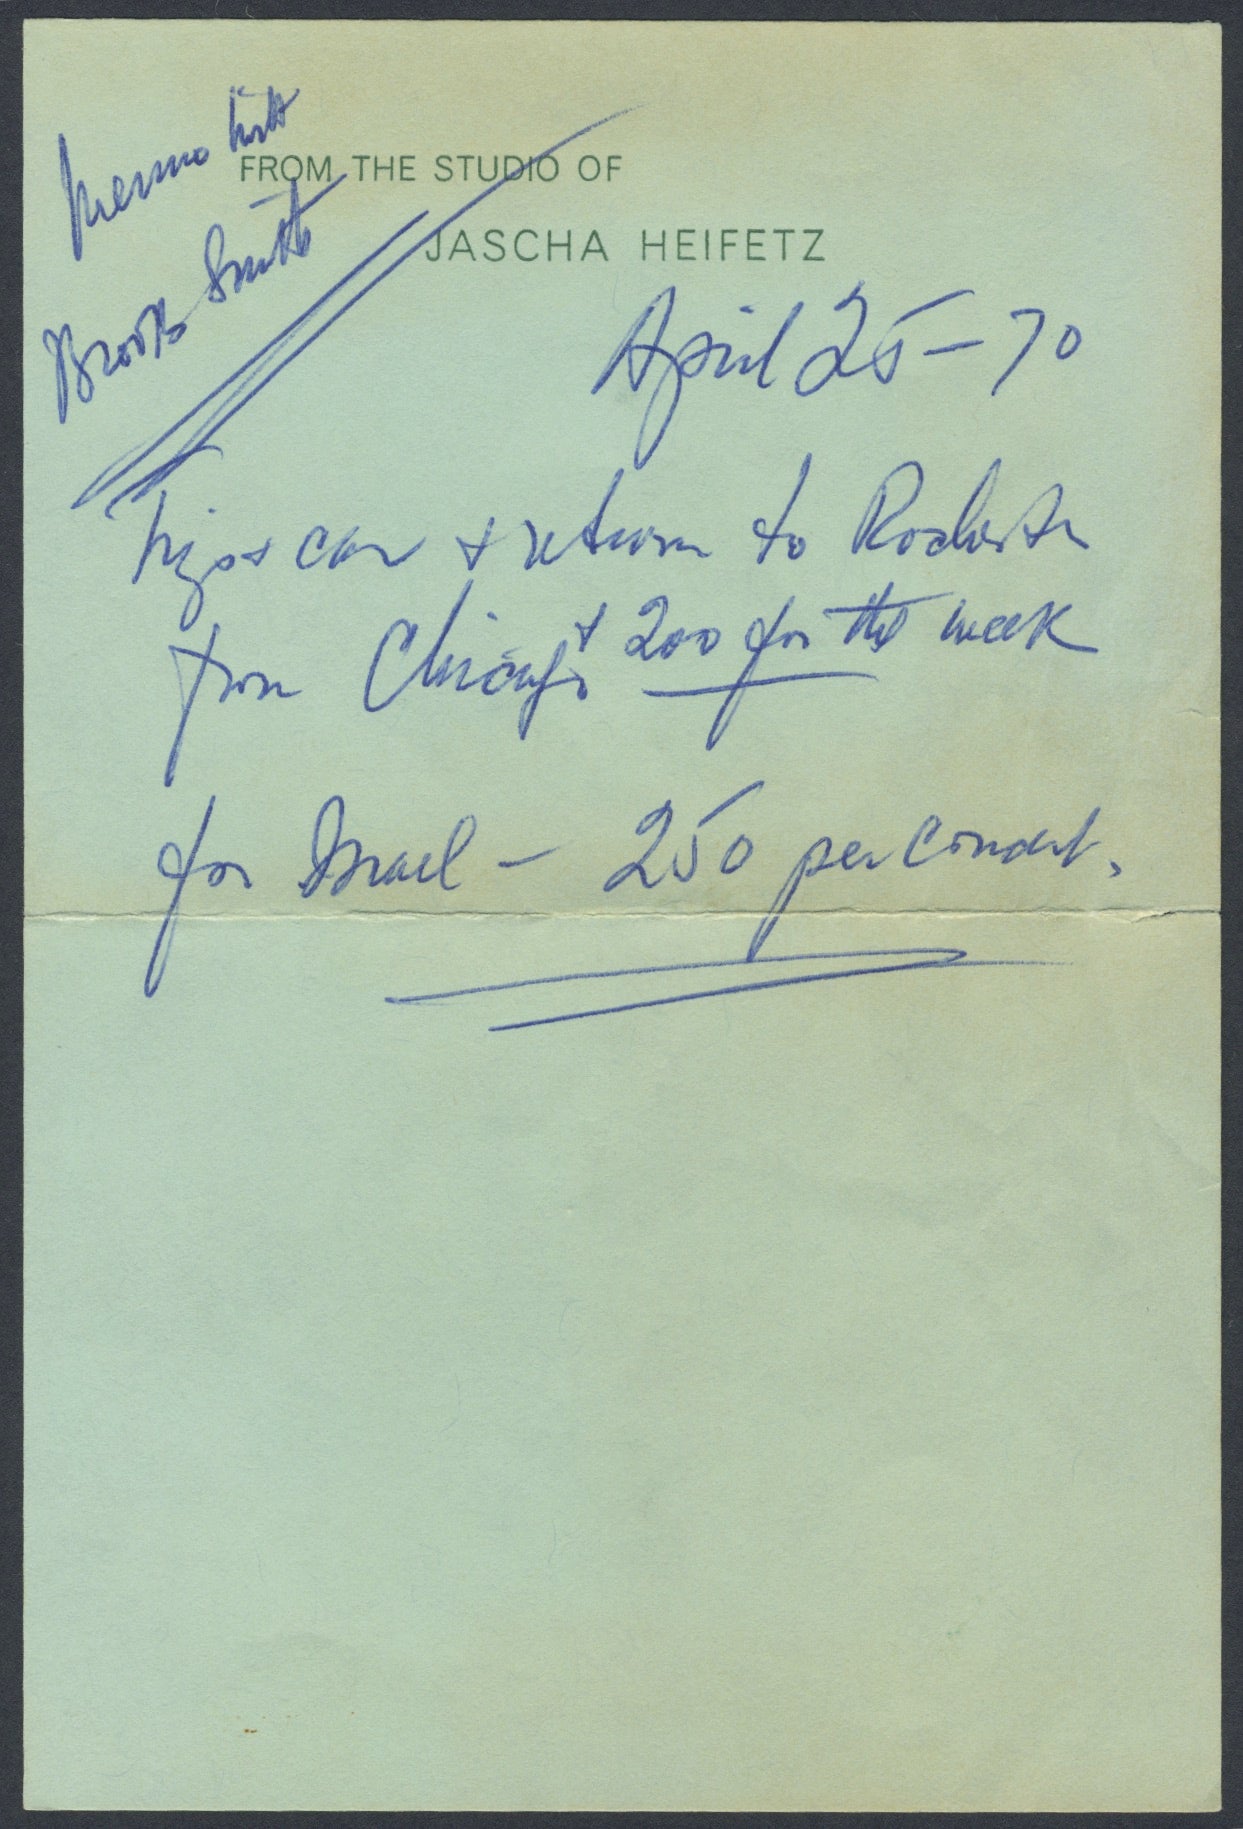 memo with
Brooks Smith
FROM THE STUDIO OF
JASCHA HEIFETZ
April 25-70
car + return to Rochester
from Chicago + 200 for the week
for Israel - 250 per concert.